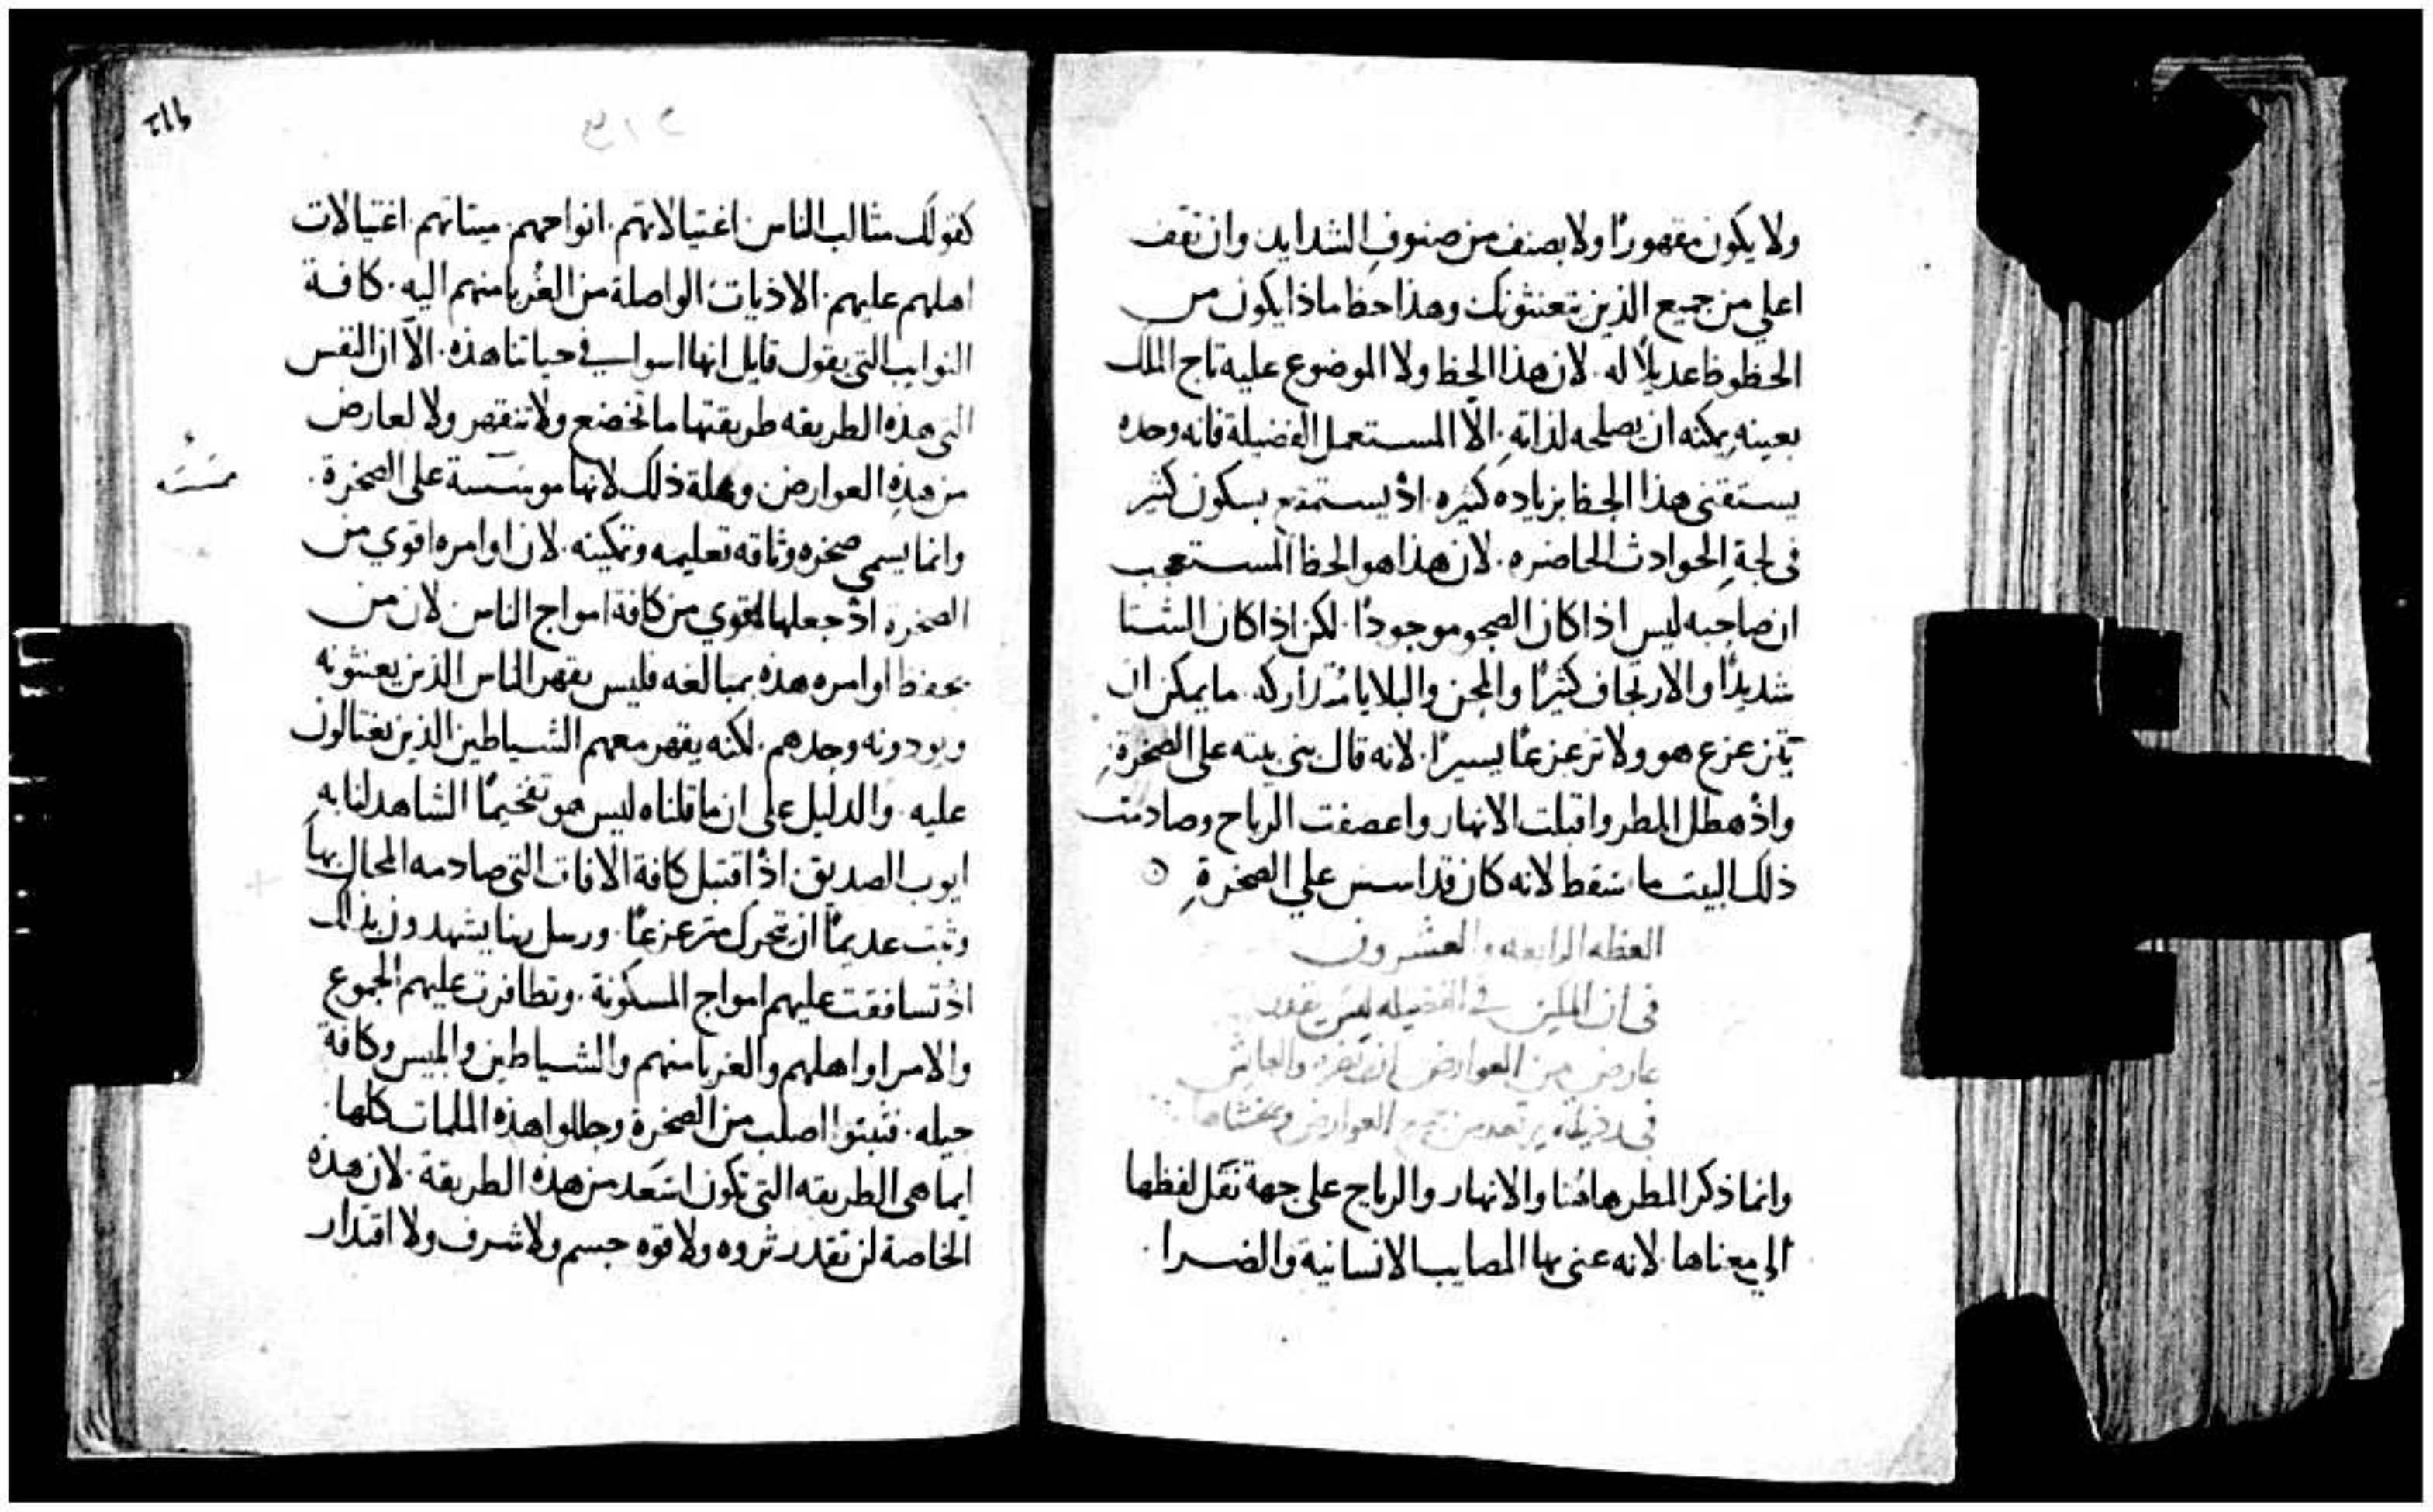 ولا يكون مقهورًا ولا بصنف من صنوفِ الشدايد وان تقف
اعلي من جميع الذين يتعنتونك وهذا حظ ماذا يكون من
الحظوظ عديلًا له. لان هذا الحظ ولا الموضوع عليه تاج الملك
بعينهِ يمكنه ان يصلحه لذاتهِ. الّا المستعمل الفضيلة فانه وحده
يستقني هذا الحظ بزياده كثيره. اذْ يستمتع بسكون كثير
في لجةِ الحوادث الحاضره. لان هذا هو الحظ المستعجب
ان صاحبه ليس اذا كان الصحو موجودًا. لكن اذا كان الشتا
شديدًا والارتجاف كثيرًا والمحن والبلايا متداركه. ما يمكن ان
يتزعزع هو ولا تزعزعًا يسيرًا. لانه قال بني بيته على الصخرةِ
واذْ هطل المطر واقبلت الانهار واعصفت الرياح وصادمت
ذلك البيت ما سقط لانه كان قد اسس علي الصخرةِ
العظه الرابعه والعشرون
في ان المكين في الفضيله ليس يقدر
عارض من العوارض ان يضره والعايش
في رذيلة يرتعد من جميع العوارض ويخشاها
وانما ذكر المطر هاهنا والانهار والرياح على جهة نقل لفظها
الي معناها. لانه عني بها المصايب الانسانية والضرا
كقولك مثالب الناس اغتيالاتهم. انواحهم. ميتاتهم. اغتيالات
اهلهم عليهم. الاذيات الواصلة من الغُربا منهم اليه. كافة
النوايب التي يقول قايل انها اسوا في حياتنا هذه. الّا ان النفس
التي هذه الطريقه طريقتها ما تخضع ولا تنقهر ولا لعارض
من هذِه العوارض وعلة ذلك لانها موسسة على الصخرة.
وانما يسمي صخره وثاقه تعليمه وتمكينه. لان اوامره اقوي من
الصخرة اذْ جعلها اقوي من كافة امواج الناس لان من
يحفظ اوامره هذه بمبالغه فليس يقهر الناس الذين يعنتونه
ويودونه وحدهم. لكنه يقهر معهم الشياطين الذين يغتالون
عليه. والدليل على ان ما قلناه ليس هو تفخيمًا الشاهد لنا به
ايوب الصديق. اذْ اقتبل كافة الافات التي صادمه المحال بها
وثبت عديمًا ان يتحرك متزعزعًا. ورسل ربنا يشهدون بذلك
اذْ تسافقت عليهم امواج المسكونة. وتظافرت عليهم الجموع
والامرا واهلهم والغربا منهم والشياطين وابليس وكافة
حيله. فثبتوا اصلب من الصخرة وحللوا هذه الملمات كلها
ايما هي الطريقه التي تكون اسعد من هذه الطريقة. لان هذه
الخاصة لن تقدر ثروه ولا قوه جسم ولا شرف ولا اقتدار